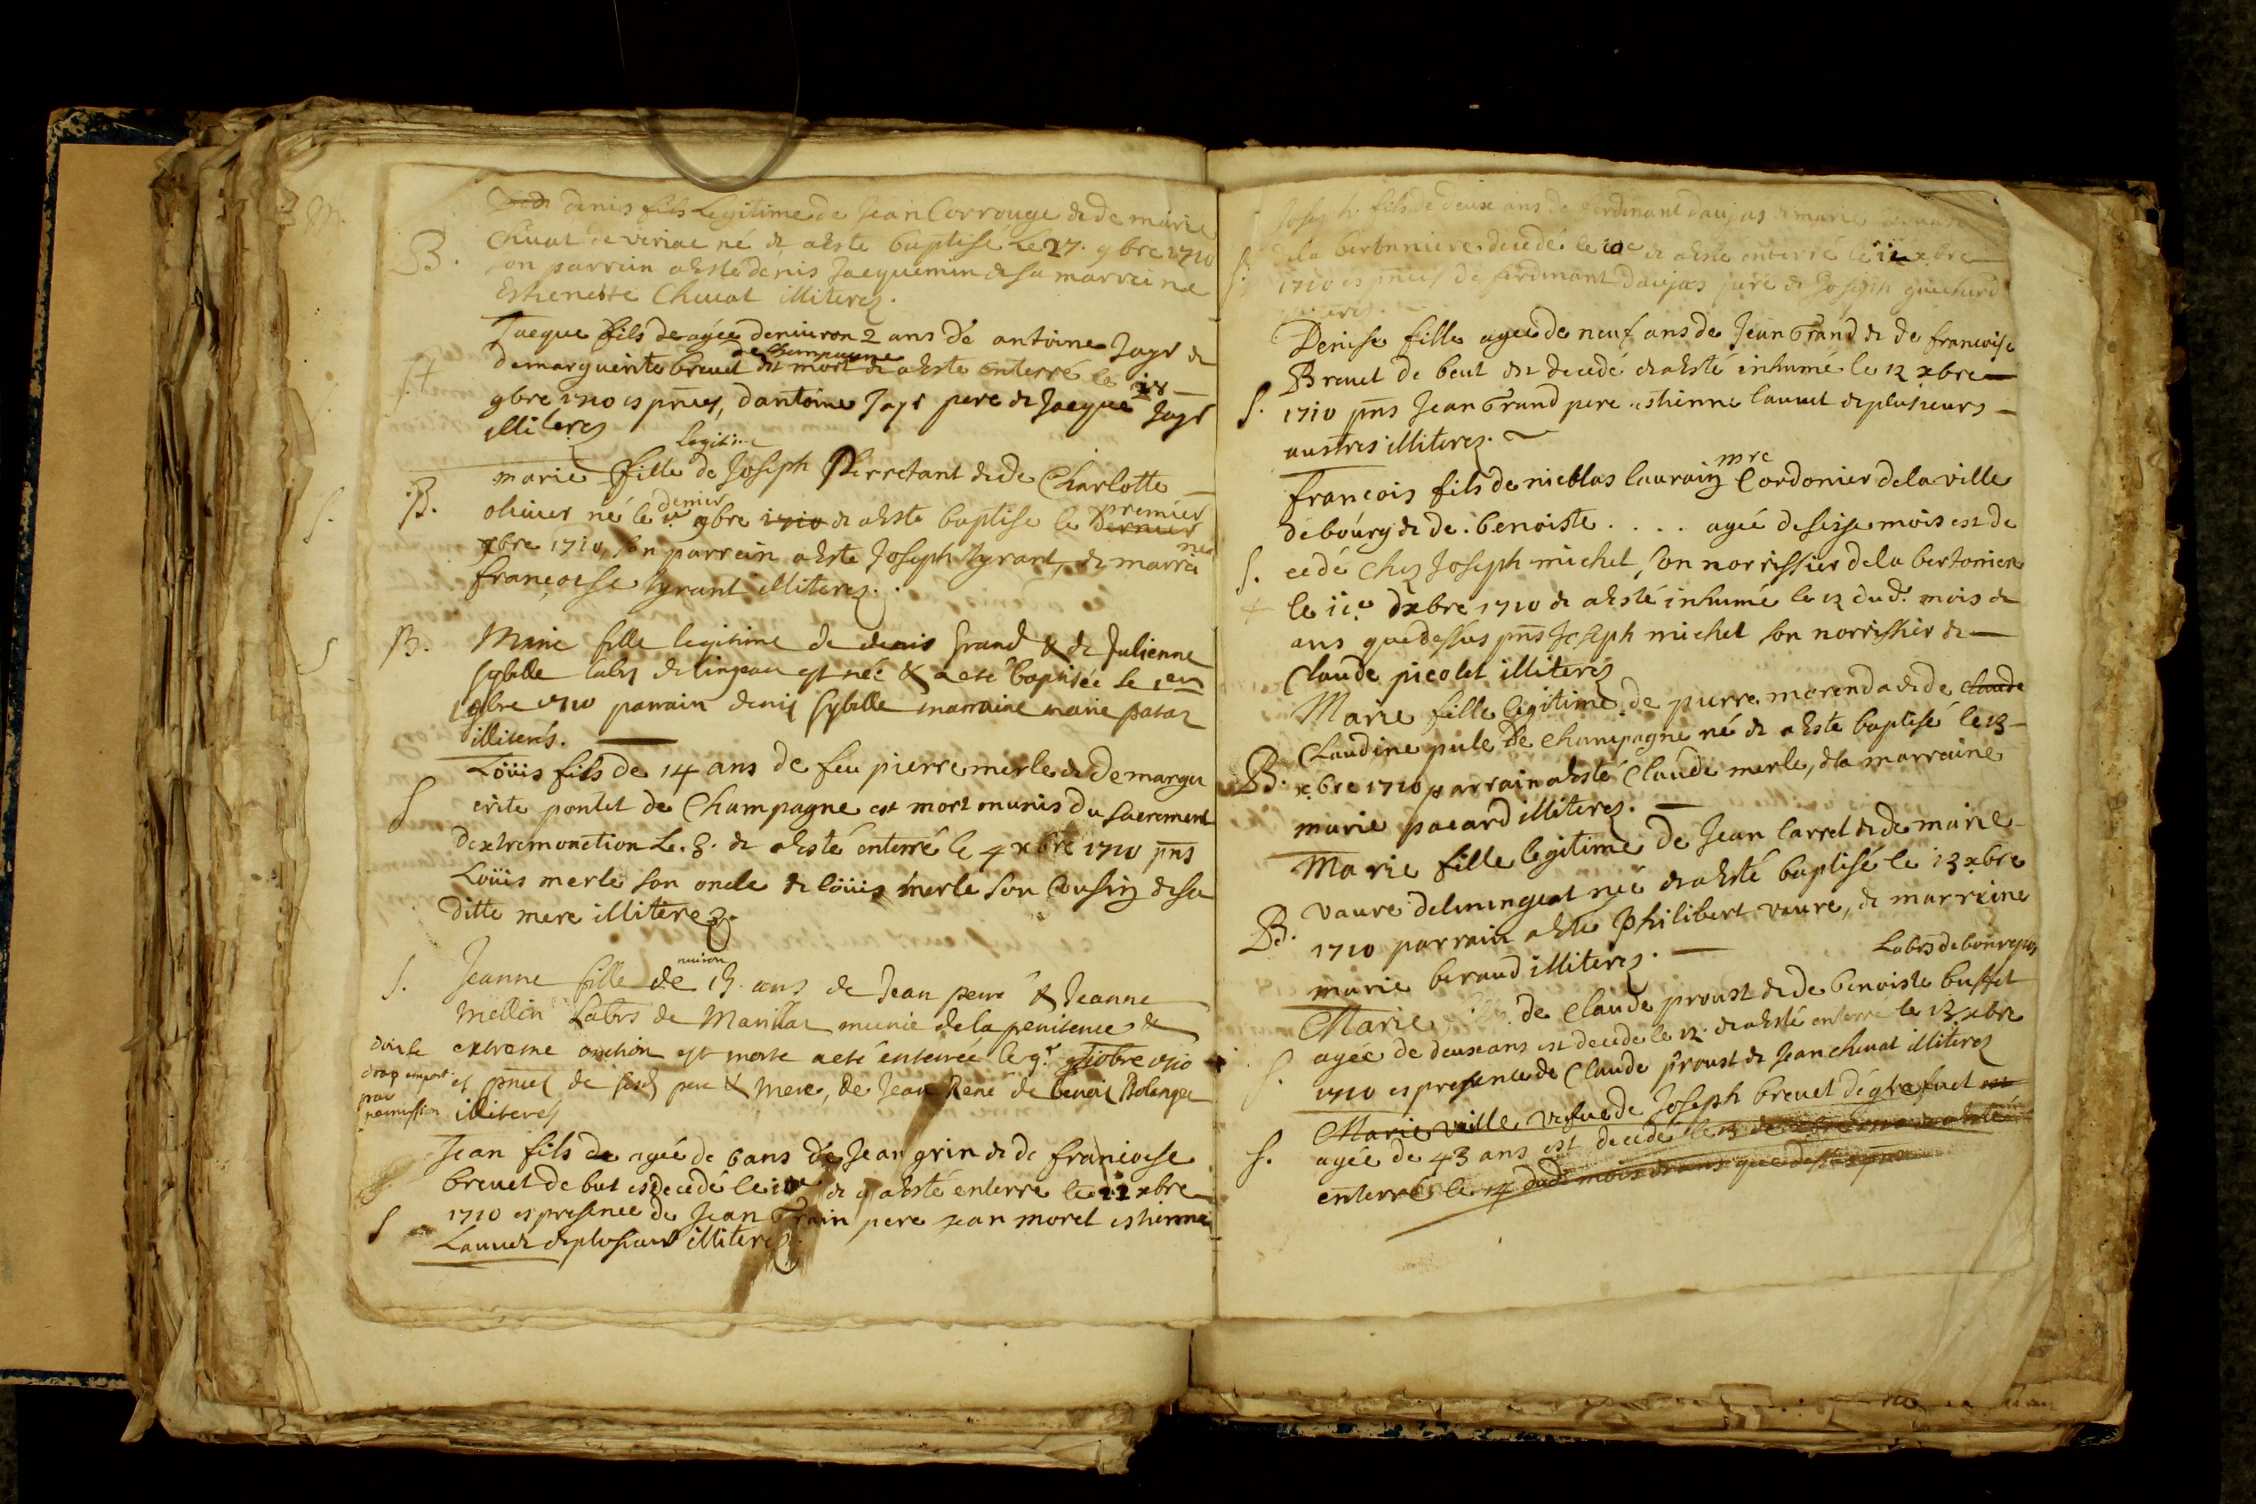 denis fils Legitime de Jean Corrouge & de marie
B. Chuat de veriac né & aesté baptisé Le 27. 9bre 1710
son parrain aesté denis Jacquemin & sa marraine
Estienette Chuat illiterez.
Jacque fils de agée denviron 2 ans de antoine Jayr &
de Champagne
de marguerite brevet est mort & aesté enterré le 28
9bre 1710 es pnces, dantoine Jayr pere & Jacque Jayr
illiterez
legitime
marie fille de Joseph Perretant & de Charlotte
denier premier
B. olivier né le 9bre 1710 & aesté baptise le dernier
xbre 1710, son parrain aesté Joseph tyrant, & marrei
ne
françoise tyrant illiterez.
B. Marie fille legitime de denis Grand & de Julienne
sybille labrs de lingeat est née & a eté baptisée le 1er
xbre 1710 parrain denis sybille marraine marie pacat
illiterés.
Loüis fils de 14 ans de feu pierre merle & de margu
S erite pontet de Champagne est mort munis du sacrement
dextremonction Le. 3. & aesté enterré le 4 xbre 1710 pns
Loüis merle son oncle & loüis merle son Cousin & sa
ditte mere illiterez.
nviron
S. Jeanne fille de 15. ans de Jean perre & Jeanne
Mellin Labrs de Marillat munie de la penitence &
doit le extreme onction est morte a eté enterrée le 9e xbre 1710
drap emporté es pnces de ses pere & mere, de Jean Rene de benoit Bolanger
par
permission illiterez
Jean fils de agée de 6 ans de Jean grin & de francoise
brevet de but est decedé le 10e & aesté enterre le 11 xbre
S 1710 es presence de Jean pere Jean morel estienne
Lauvet & plusieurs illiterez.
Joseph fils de deux ans de ferdinant daujas & marie
S. de la bertonniere decedé le 10e & aesté enterré le 11 xbre
1710 es pnces de ferdinant daujas pere & Joseph guichard
Denise fille agée de neuf ans de Jean Grand & de francoise
Brevet de beut est decedé & aesté inhumé le 12 xbre
S. 1710 pns Jean Grand pere estienne lauvet & plusieurs
austres illiterez.
mre
francois fils de nicollas laurain Cordonier de la ville
de bourg & de benoiste . . . . agée de seize mois est de
S. cedé chez Joseph michel, son norrissier de la bertonier
le 11e dxbre 1710 & aesté inhumé le 12 dud. mois &
ans que dessus pns Joseph michel son norrissier &
Claude picolet illiterez
Marie fille legitime de pierre morenda & de claude
Claudine pule de Champagne né & aesté baptisé le 13
B. xbre 1710 parrain aesté Claude merle, & la marraine
marie pacard illiterez.
Marie fille legitime de Jean Carrel & de marie
vaure delmingeat née & aesté baptisé le 13 xbre
B. 1710 parrain aesté Philibert vaure, & marreine
marie beraud illiterez.
Labrs de bonrepos
Marie de Claude proust & de benoiste buffet
agée de deux ans est decedé le 12 & aesté enterré le 13 xbre
S. 1710 es presence de Claude proust & Jean chuat illiterez
Marie veille vefue de Joseph brevet de grafuel est
S. agée de 43 ans est decedé le 13 de xbre 1710 & aesté
enterré le 14 dud. mois & ans que dessus pns